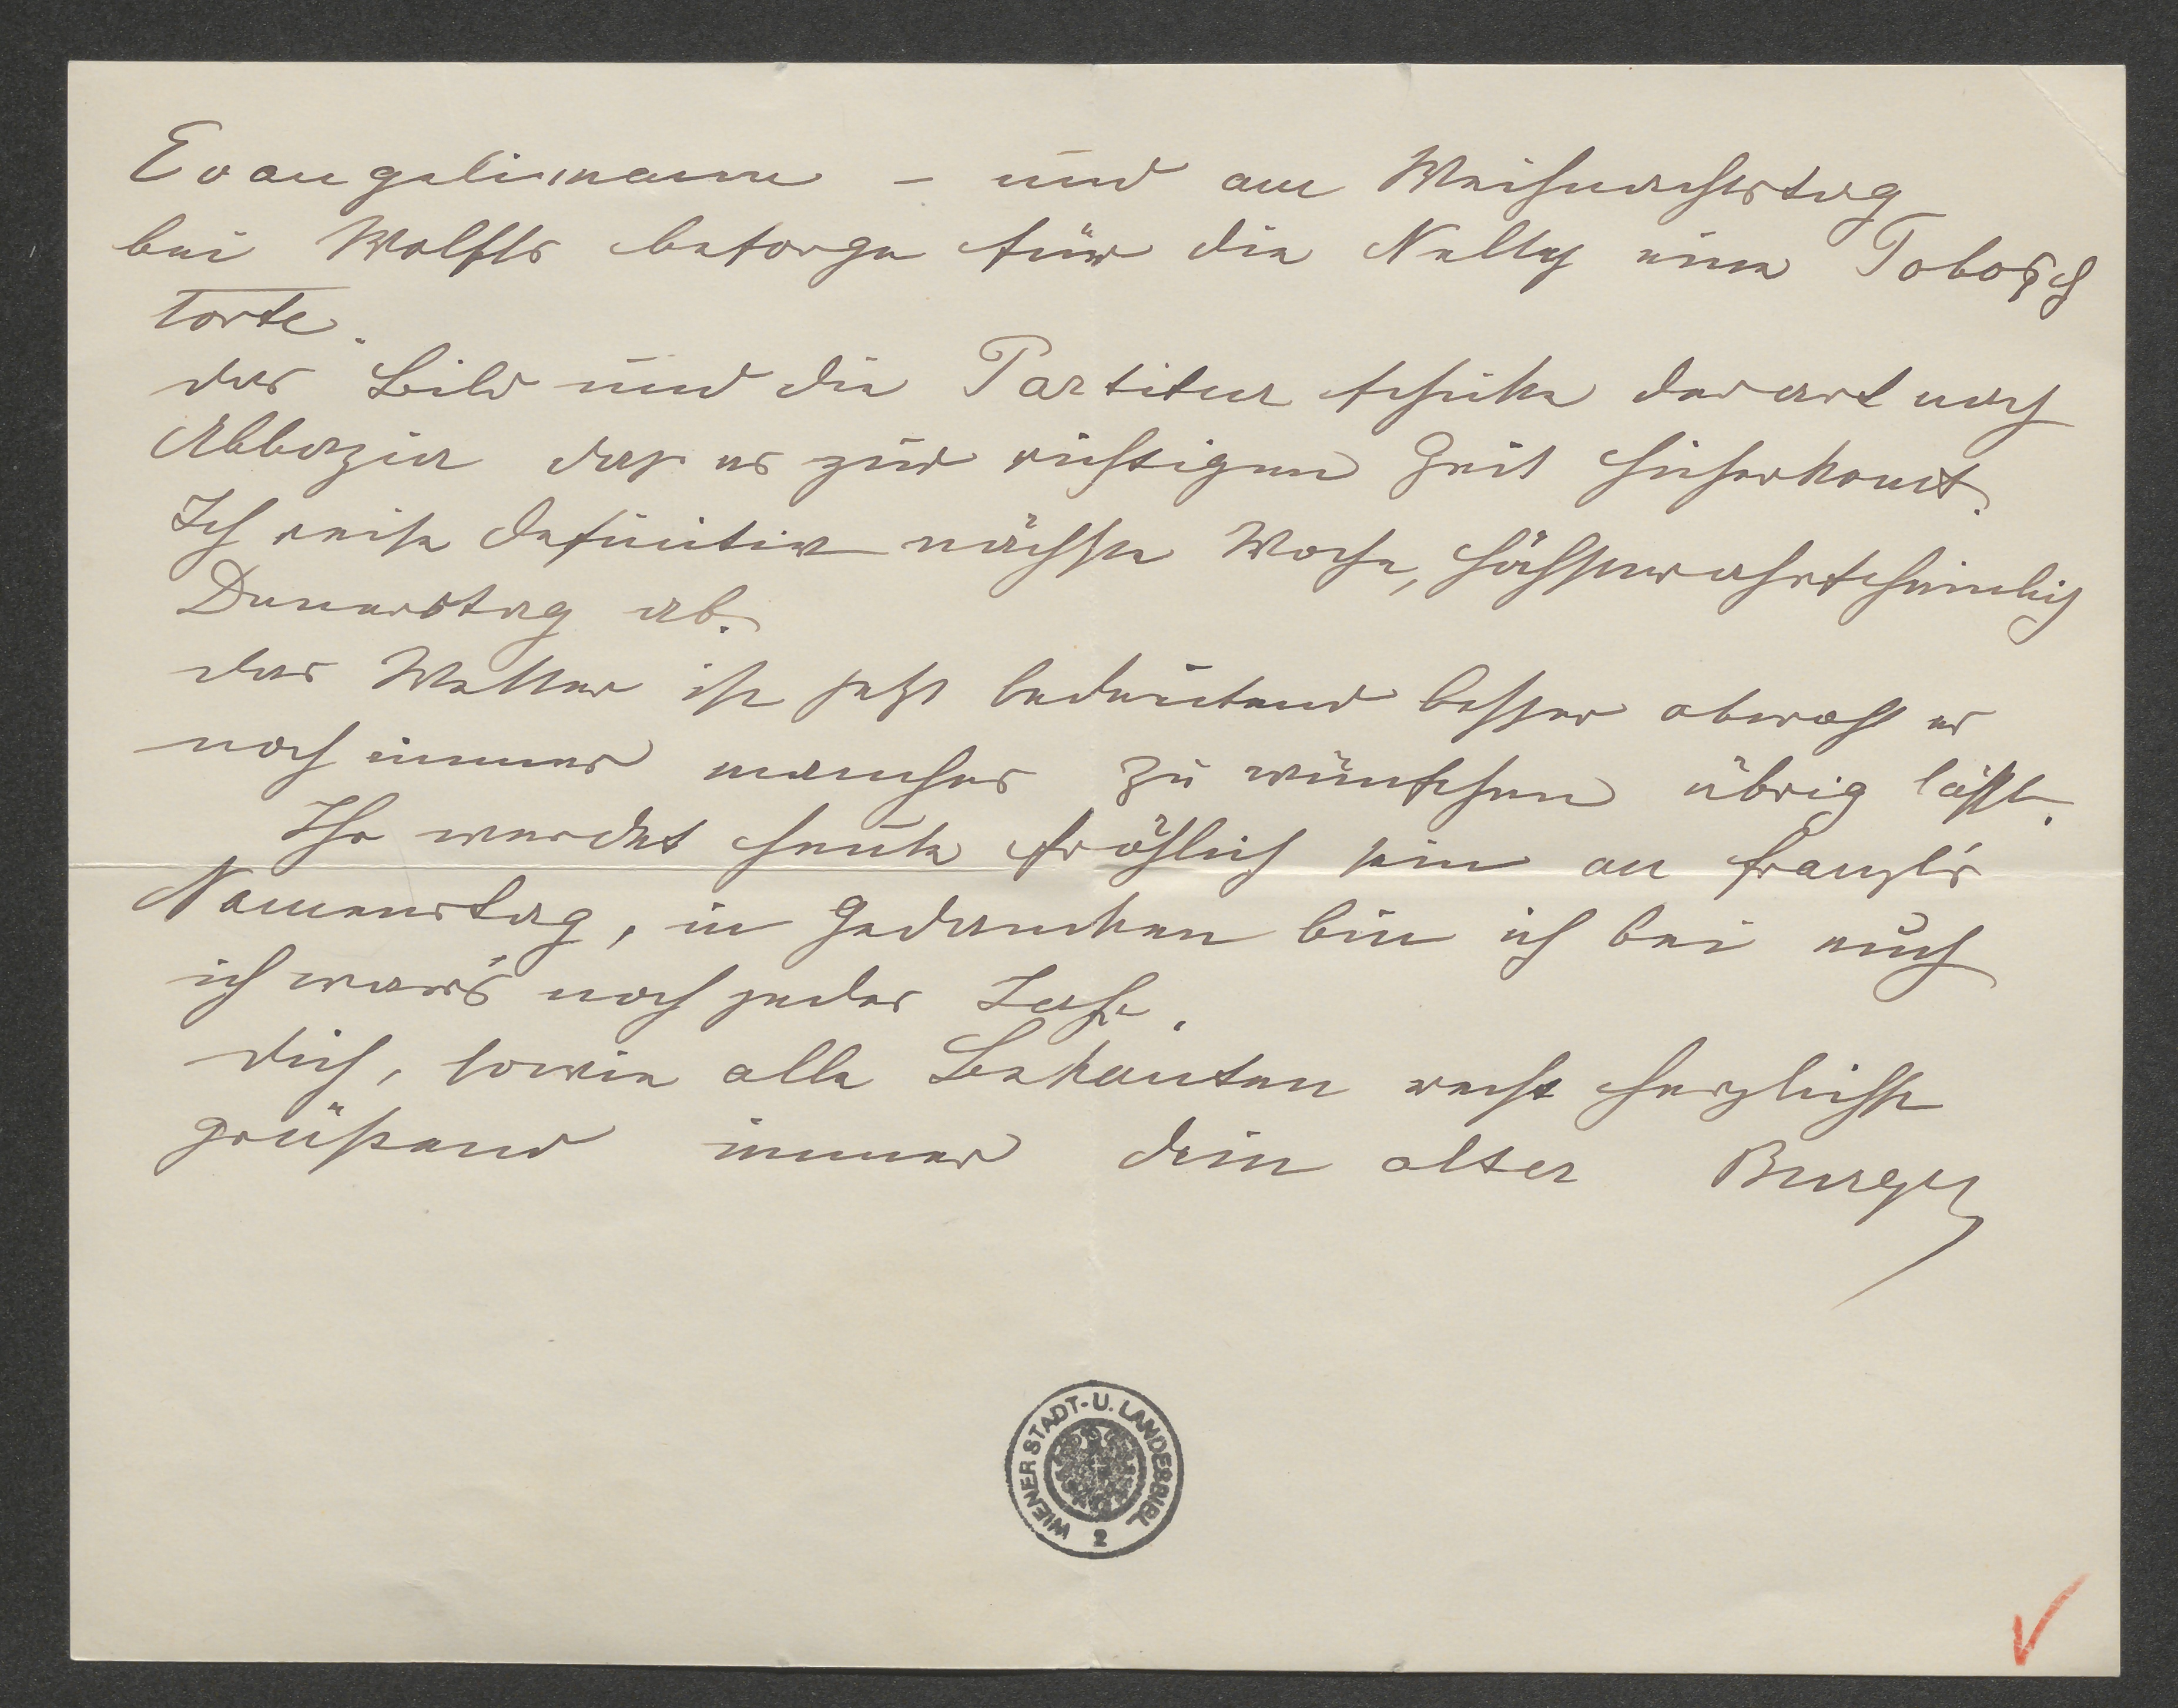 Evangelimann – und am Weihnachtstag
bei Wolfls besorge für die Nelly eine Tobosch
torte.
das Bild und die Partitur schicke derart nach
Abbazia das es zur richtigen Zeit hieherkomt.
Ich reise definitiv nächste Woche, höchstwahrscheinlich
Donnerstag ab.
das Wetter ist jetzt bedeutend besser obwohl es
noch immer manches zu wünschen übrig lässt.
Ihr werdet heute fröhlich sein an Franzl's
Namenstag, in Gedanken bin ich bei euch
ich war's noch jedes Jahr.
dich, sowie alle Bekanten recht herzlichst
grüßend immer dein alter Burger
WIENER STADT-U. LANDESBIBL.
2